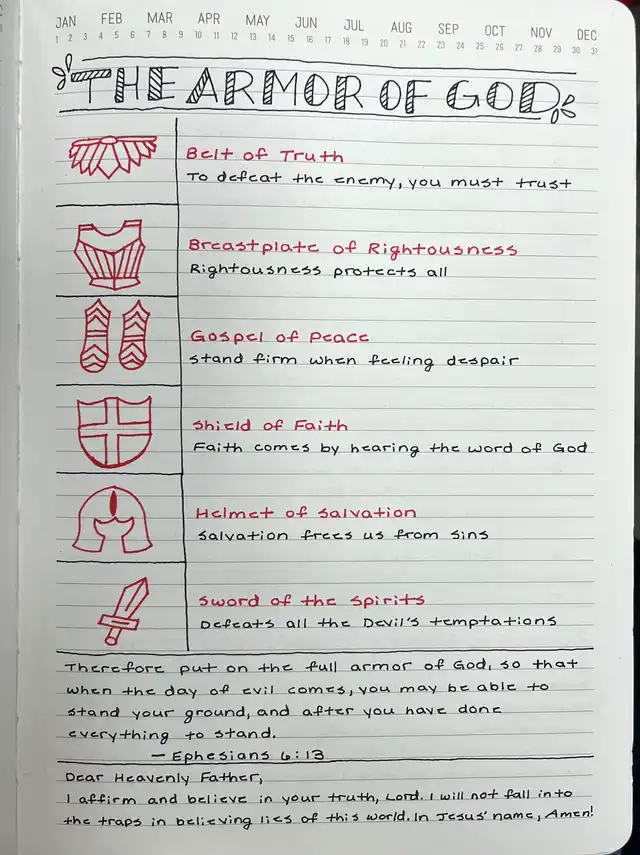 JAN FEB MAR APR MAY JUN JUL AUG SEP OCT NOV DEC
1 2 3 4 5 6 7 8 9 10 11 12 13 14 15 16 17 18 19 20 21 22 23 24 25 26 27 28 29 30 31
THE ARMOR OF GOD
Belt of Truth
To defeat the enemy, you must trust
Breastplate of Rightousness
Rightousness protects all
Gospel of Peace
Stand firm when feeling despair
Shield of Faith
Faith comes by hearing the word of God
Helmet of Salvation
Salvation frees us from sins
Sword of the Spirits
Defeats all the Devil's temptations
Therefore put on the full armor of God, so that
when the day of evil comes, you may be able to
stand your ground, and after you have done
everything to stand.
— Ephesians 6:13
Dear Heavenly Father,
I affirm and believe in your truth, Lord. I will not fall into
the traps in believing lies of this world. In Jesus' name, Amen!